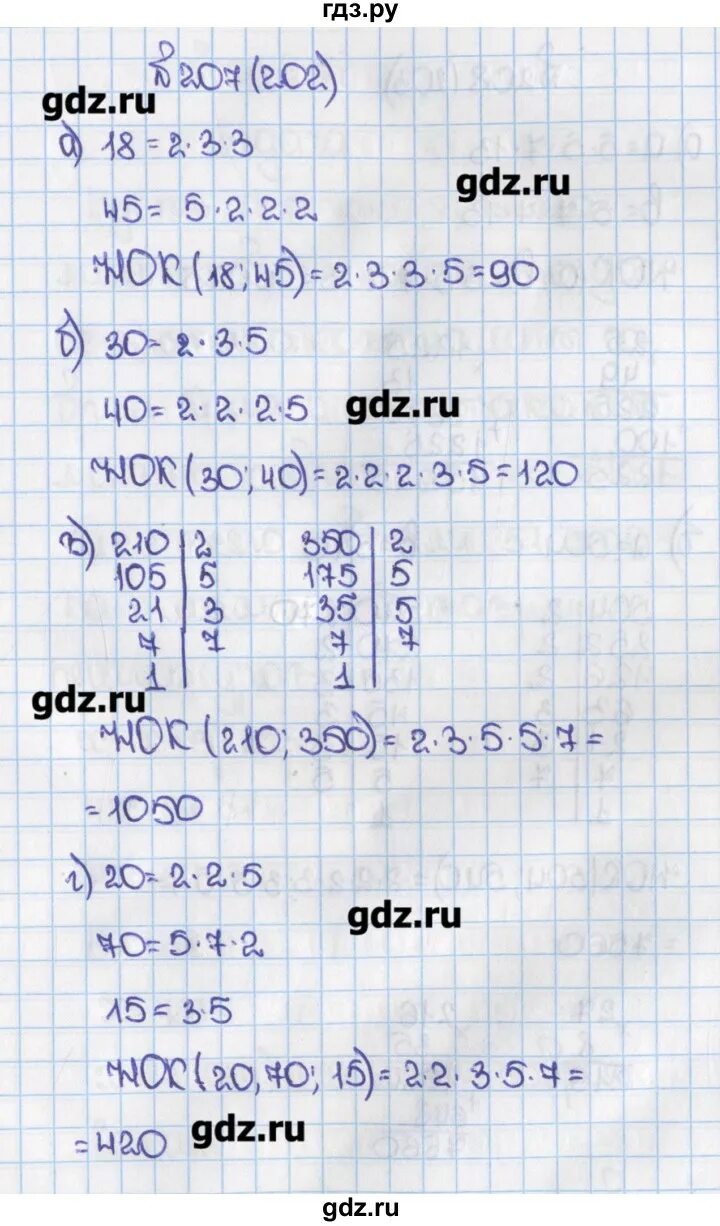 гдз.ру
№207(202)
gdz.ru
а) 18=2·3·3
gdz.ru
45= 5·2·2·2
НОК(18;45)=2·3·3·5=90
б) 30=2·3·5
40=2·2·2·5
gdz.ru
НОК(30;40)=2·2·2·3·5=120
в) 210|2 350|2
105|5 175|5
21|3 35|5
7|7 7|7
1| 1|
gdz.ru
НОК(210;350)=2·3·5·5·7=
=1050
г) 20=2·2·5
gdz.ru
70=5·7·2
15=3·5
НОК(20,70;15)=2·2·3·5·7=
=420
gdz.ru
gdz.ru